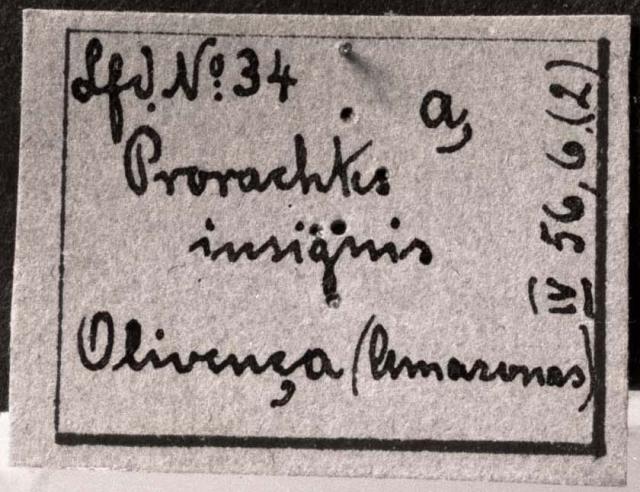 Lfd. No. 34
a,
Prorachtes
insignis
Olivença (Amazonas)
IV 56, 6. (2)